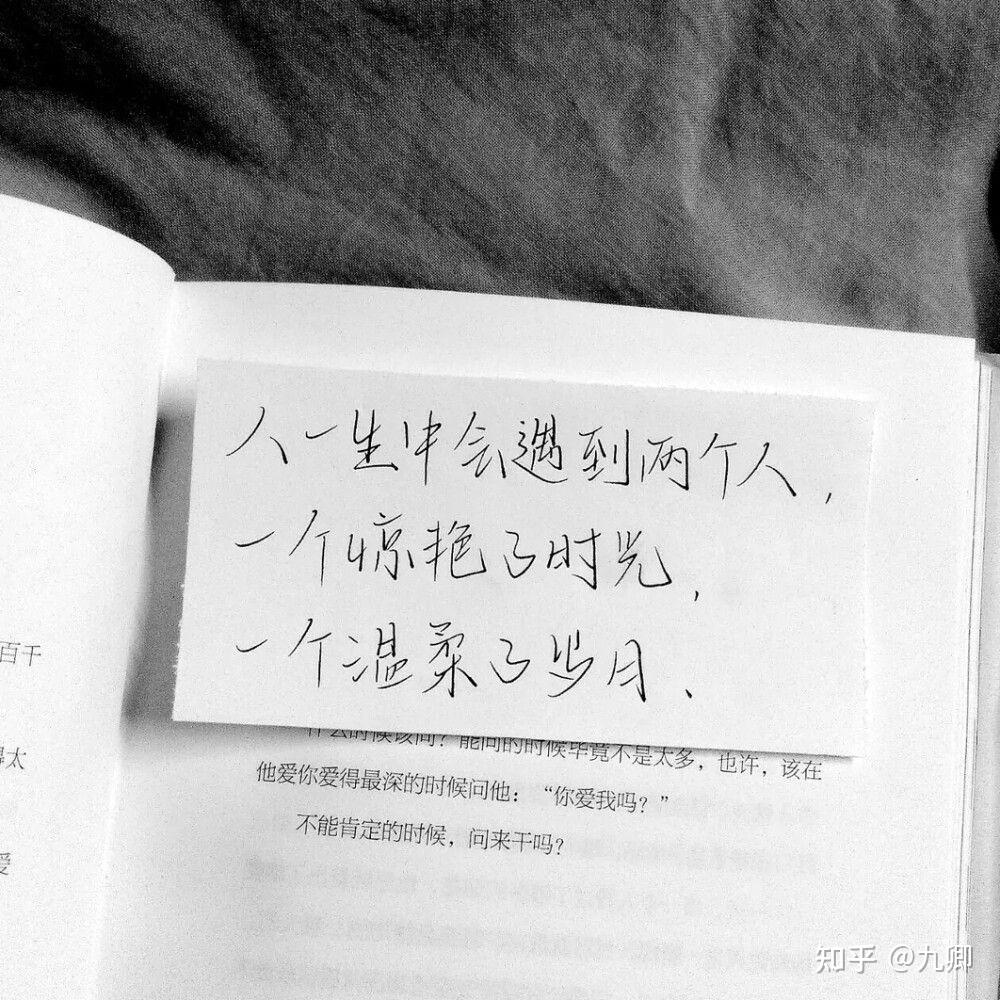 人一生中会遇到两个人，
一个惊艳了时光，
一个温柔了岁月、
百千
得太
爱
什么时候该问？能问的时候毕竟不是太多，也许，该在
他爱你爱得最深的时候问他：“你爱我吗？”
不能肯定的时候，问来干吗？
知乎 @九卿